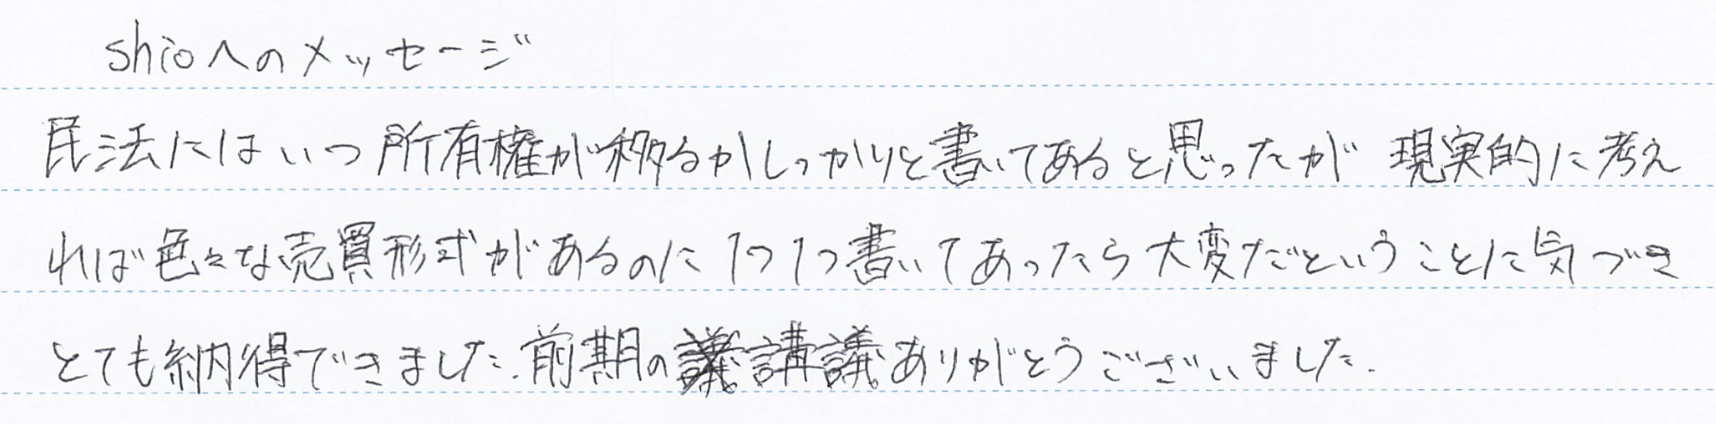 shioへのメッセージ
民法にはいつ所有権が移るかしっかりと書いてあると思ったが 現実的に考え
れば色々な売買形式があるのに1つ1つ書いてあったら大変だということに気づき
とても納得できました.前期の講議ありがとうございました.